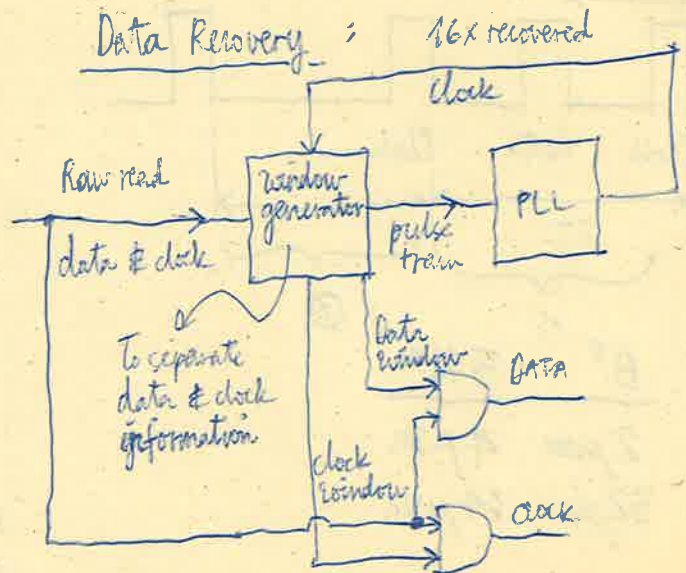 Data Recovery : 16x recovered
clock
Raw read
data & clock
window
generator
pulse
train
PLL
To seperate
data & clock
information
Data
window
DATA
clock
window
CLOCK